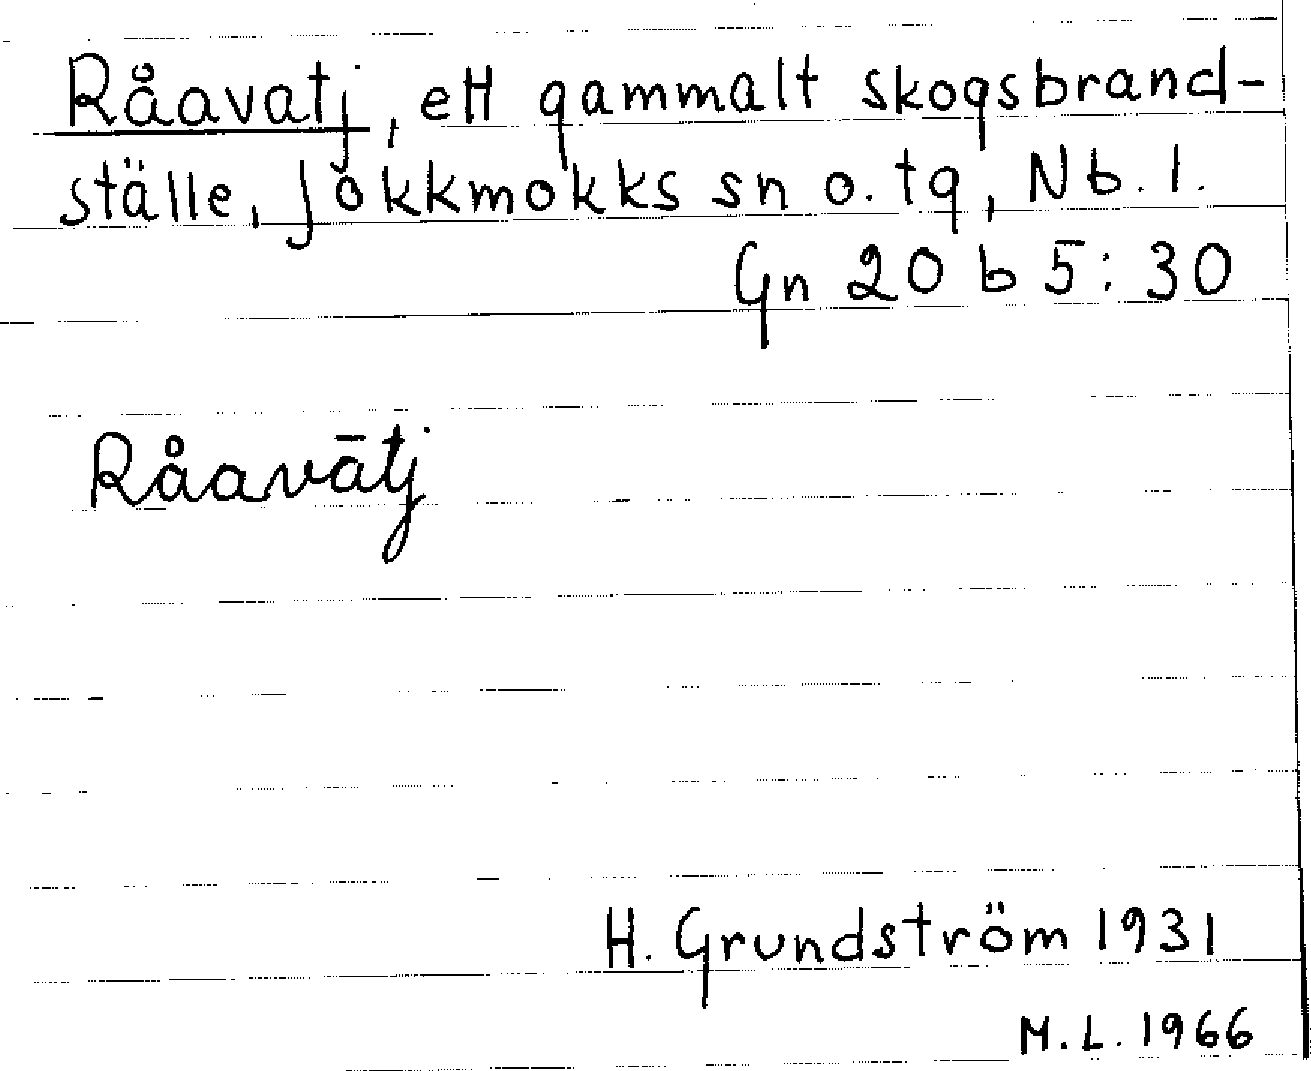 Råavatj, ett gammalt skogsbrand-
ställe, Jokkmokks sn o. tg, Nb. l.
Gn 20 b 5:30
Råavātj
H. Grundström 1931
M.L. 1966